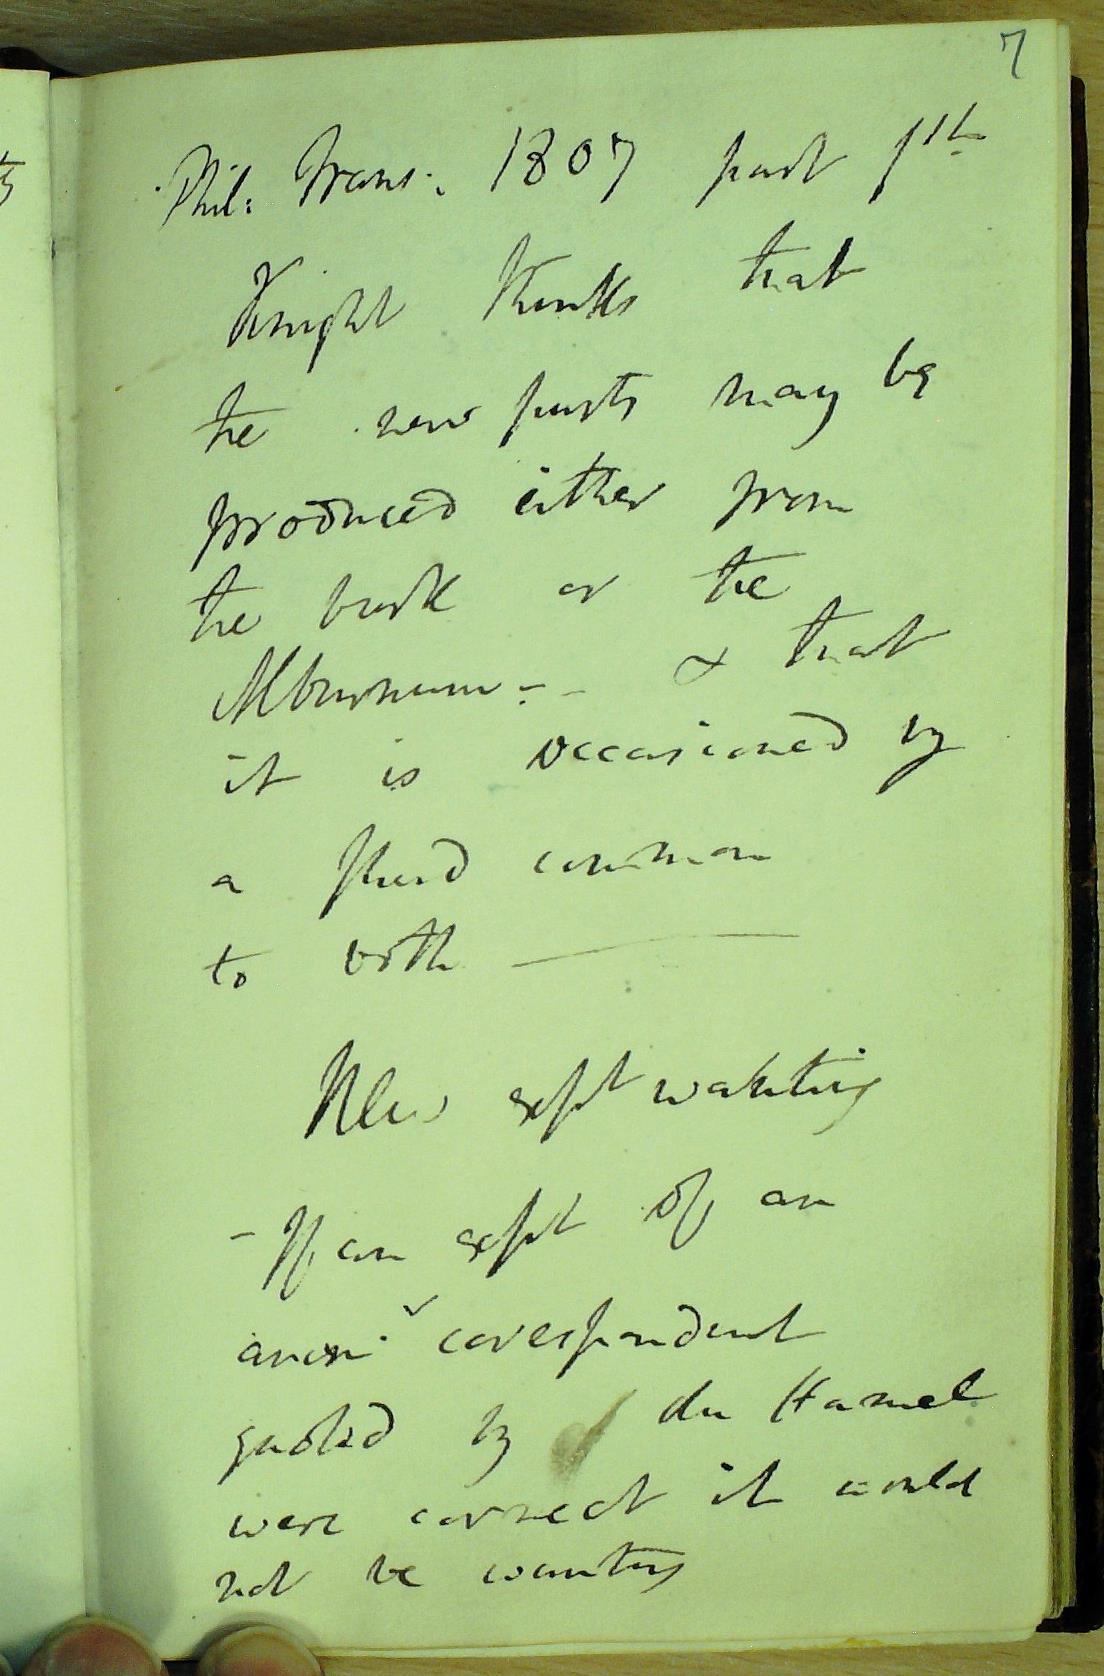 7
Phil: Trans:. 1807 part 1st
Knight thinks that
the new parts may be
produced either from
the bark or the
Alburnum - - & that
it is occasioned by
a fluid common
to both ———
expt wanting
- If an expt of an
corespondent
quoted by du Hamel
were correct it would
not be wanting